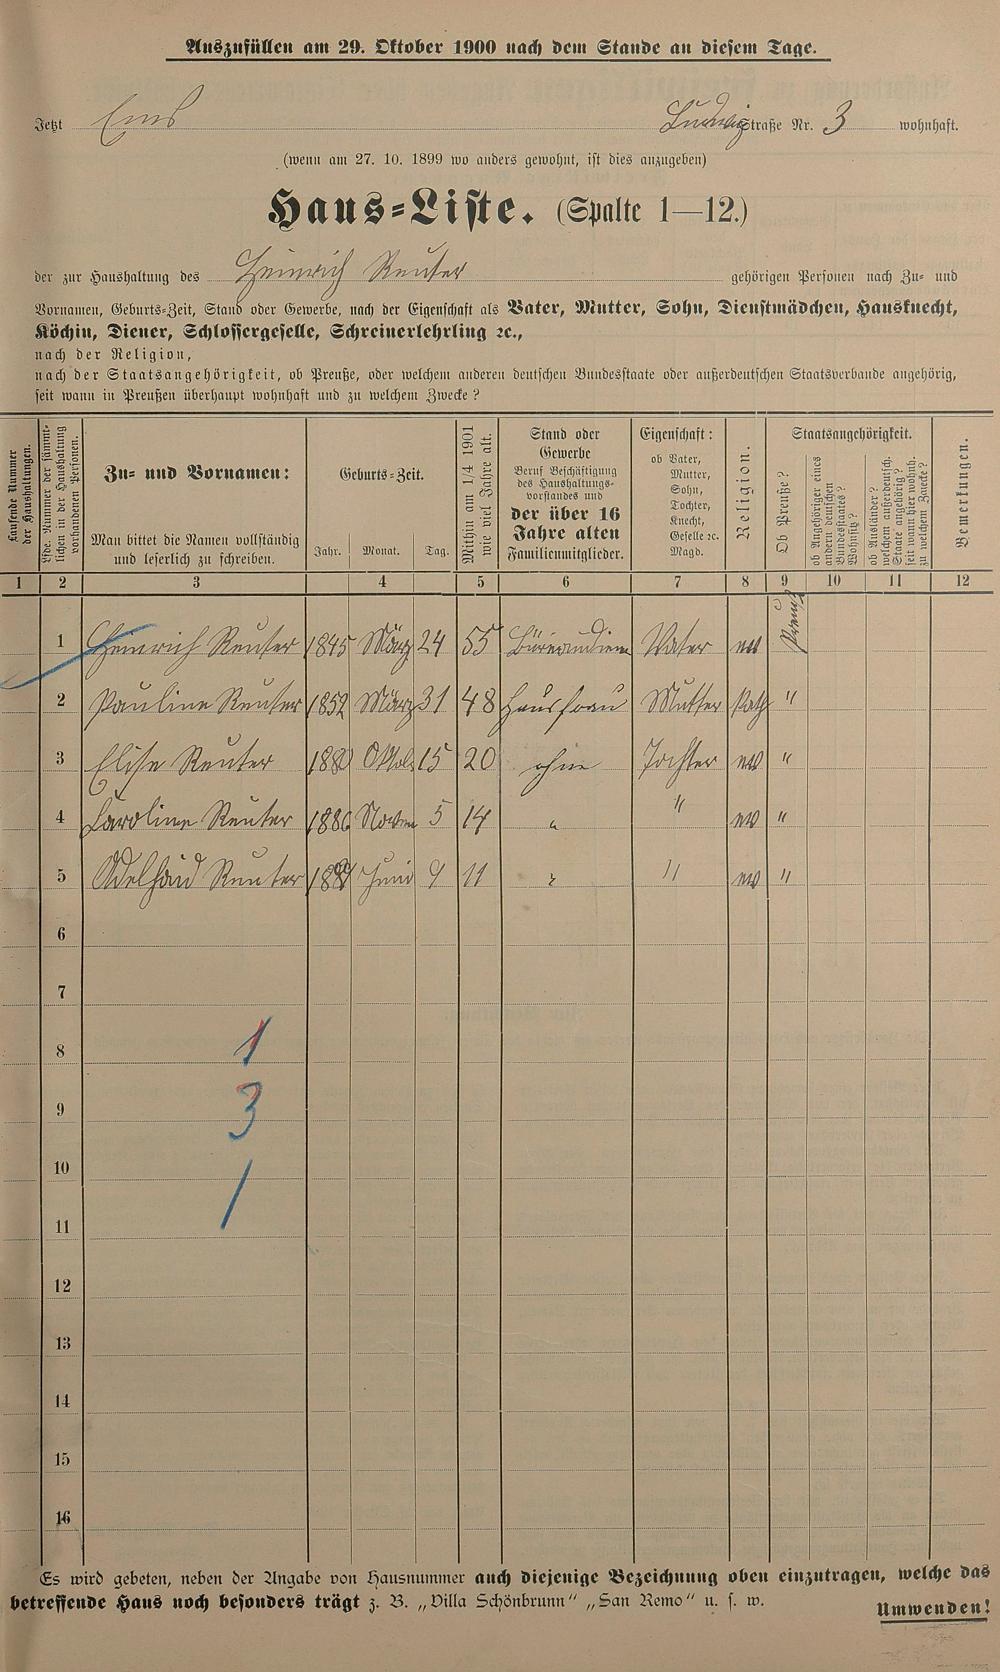 Auszufüllen am 29. Oktober 1900 nach dem Stande an diesem Tage.
Jetzt Ems Ludwigstraße Nr. 3 wohnhaft.
(wenn am 27. 10. 1899 wo anders gewohnt, ist dies anzugeben)
Haus-Liste. (Spalte 1—12.)
der zur Haushaltung des Heinrich Reuter gehörigen Personen nach Zu- und
Vornamen, Geburts-Zeit, Stand oder Gewerbe, nach der Eigenschaft als Vater, Mutter, Sohn, Dienstmädchen, Hausknecht,
Köchin, Diener, Schlossergeselle, Schreinerlehrling ꝛc.,
nach der Religion,
nach der Staatsangehörigkeit, ob Preuße, oder welchem anderen deutschen Bundesstaate oder außerdeutschen Staatsverbande angehörig,
seit wann in Preußen überhaupt wohnhaft und zu welchem Zwecke?
Laufende Nummer
der Haushaltungen.
Lfde. Nummer der sämmt-
lichen in der Haushaltung
vorhandenen Personen.
Zu- und Vornamen:
Man bittet die Namen vollständig
und leserlich zu schreiben.
Geburts-Zeit.
Jahr. Monat. Tag.
Mithin am 1/4 1901
wie viel Jahre alt.
Stand oder
Gewerbe
Beruf Beschäftigung
des Haushaltungs-
vorstandes und
der über 16
Jahre alten
Familienmitglieder.
Eigenschaft:
ob Vater,
Mutter,
Sohn,
Tochter,
Knecht,
Geselle ꝛc.
Magd.
Religion.
Staatsangehörigkeit.
Ob Preuße?
ob Angehöriger eines
andern deutschen
Bundesstaates?
Wohnsitz?
ob Ausländer?
welchem außerdeutsch.
Staate angehörig?
seit wann hier wohnh.
zu welchem Zwecke?
Bemerkungen.
1 2 3 4 5 6 7 8 9 10 11 12
1 Heinrich Reuter 1845 März 24 55 Büreaudiener Vater ev Preuß
2 Pauline Reuter 1852 März 31 48 Hausfrau Mutter Kath "
3 Elise Reuter 1880 Oktob 15 20 ohne Tochter ev "
4 Caroline Reuter 1886 Novem 5 14 " " ev "
5 Adelhaid Reuter 1889 Juni 9 11 " " ev "
6
7
8 1
9 3
10 1
11
12
13
14
15
16
Es wird gebeten, neben der Angabe von Hausnummer auch diejenige Bezeichnung oben einzutragen, welche das
betreffende Haus noch besonders trägt z. B. „Villa Schönbrunn" „San Remo" u. s. w.
Umwenden!